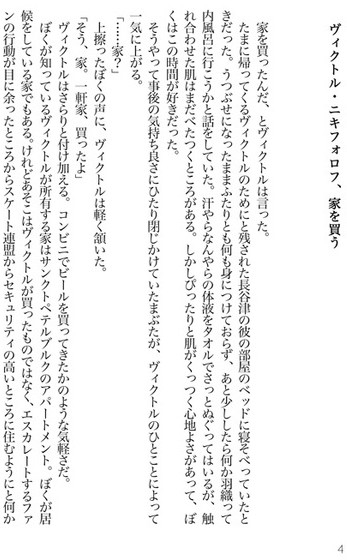 ヴィクトル・ニキフォロフ、家を買う
家を買ったんだ、とヴィクトルは言った。
たまに帰ってくるヴィクトルのためにと残された長谷津の彼の部屋のベッドに寝そべっていたと
きだった。うつぶせになったままふたりとも何も身につけておらず、あと少ししたら何か羽織って
内風呂に行こうかと話をしていた。汗やらなんやらの体液をタオルでさっとぬぐってはいるが、触
れ合わせた肌はまだべたつくところがある。しかしぴったりと肌がくっつく心地よさがあって、ぼ
くはこの時間が好きだった。
そうやって事後の気持ち良さにひたり閉じかけていたまぶたが、ヴィクトルのひとことによって
一気に上がる。
「……家？」
上擦ったぼくの声に、ヴィクトルは軽く頷いた。
「そう、家。一軒家、買ったよ」
ヴィクトルはさらりと付け加える。コンビニでビールを買ってきたかのような気軽さだ。
ぼくが知っているヴィクトルが所有する家はサンクトペテルブルクのアパートメント。ぼくが居
候をしている家でもある。けれどあそこはヴィクトルが買ったものではなく、エスカレートするファ
ンの行動が目に余ったところからスケート連盟からセキュリティの高いところに住むようにと何か
4